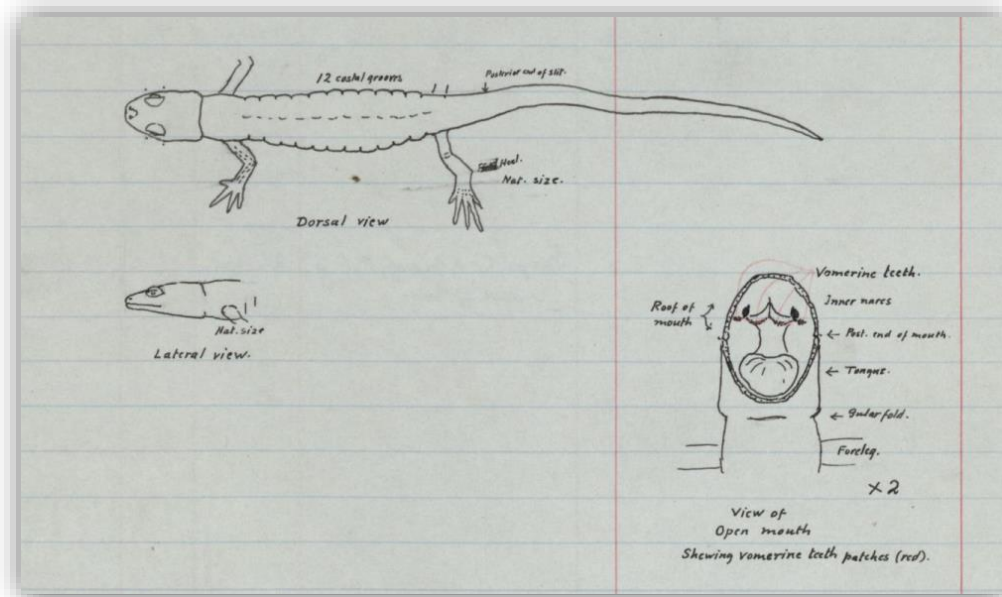 12 costal grooves
Posterior end of slit.
Heel.
Nat. size.
Dorsal view
Nat. size
Lateral view.
Vomerine teeth.
Inner nares
Roof of
mouth
← Post. end of mouth.
← Tongue.
← Gular fold.
Foreleg.
×2
View of
Open mouth
Shewing vomerine teeth patches (red).